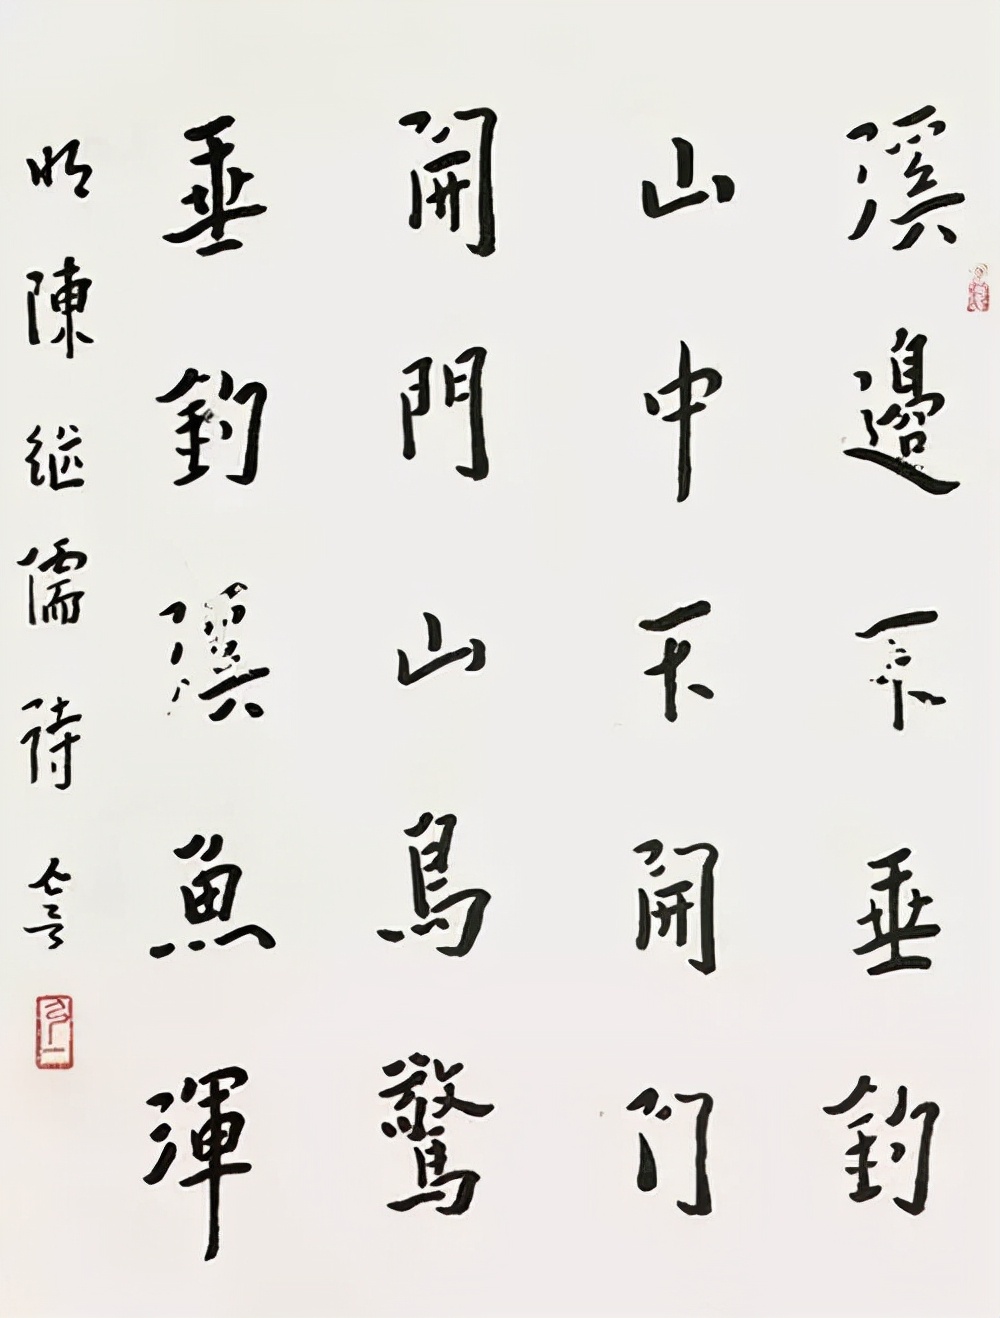 溪邊不垂鈞
山中不開門
開門山鳥驚
垂鈞溪魚渾
明陳继儒詩